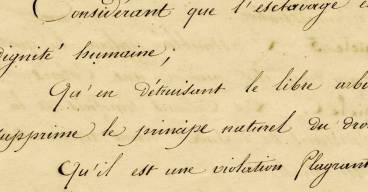 Considérant que l'esclavage
dignité humaine;
Qu'en détruisant le libre arb
supprime le principe naturel du dro
Qu'il est une violation flagran